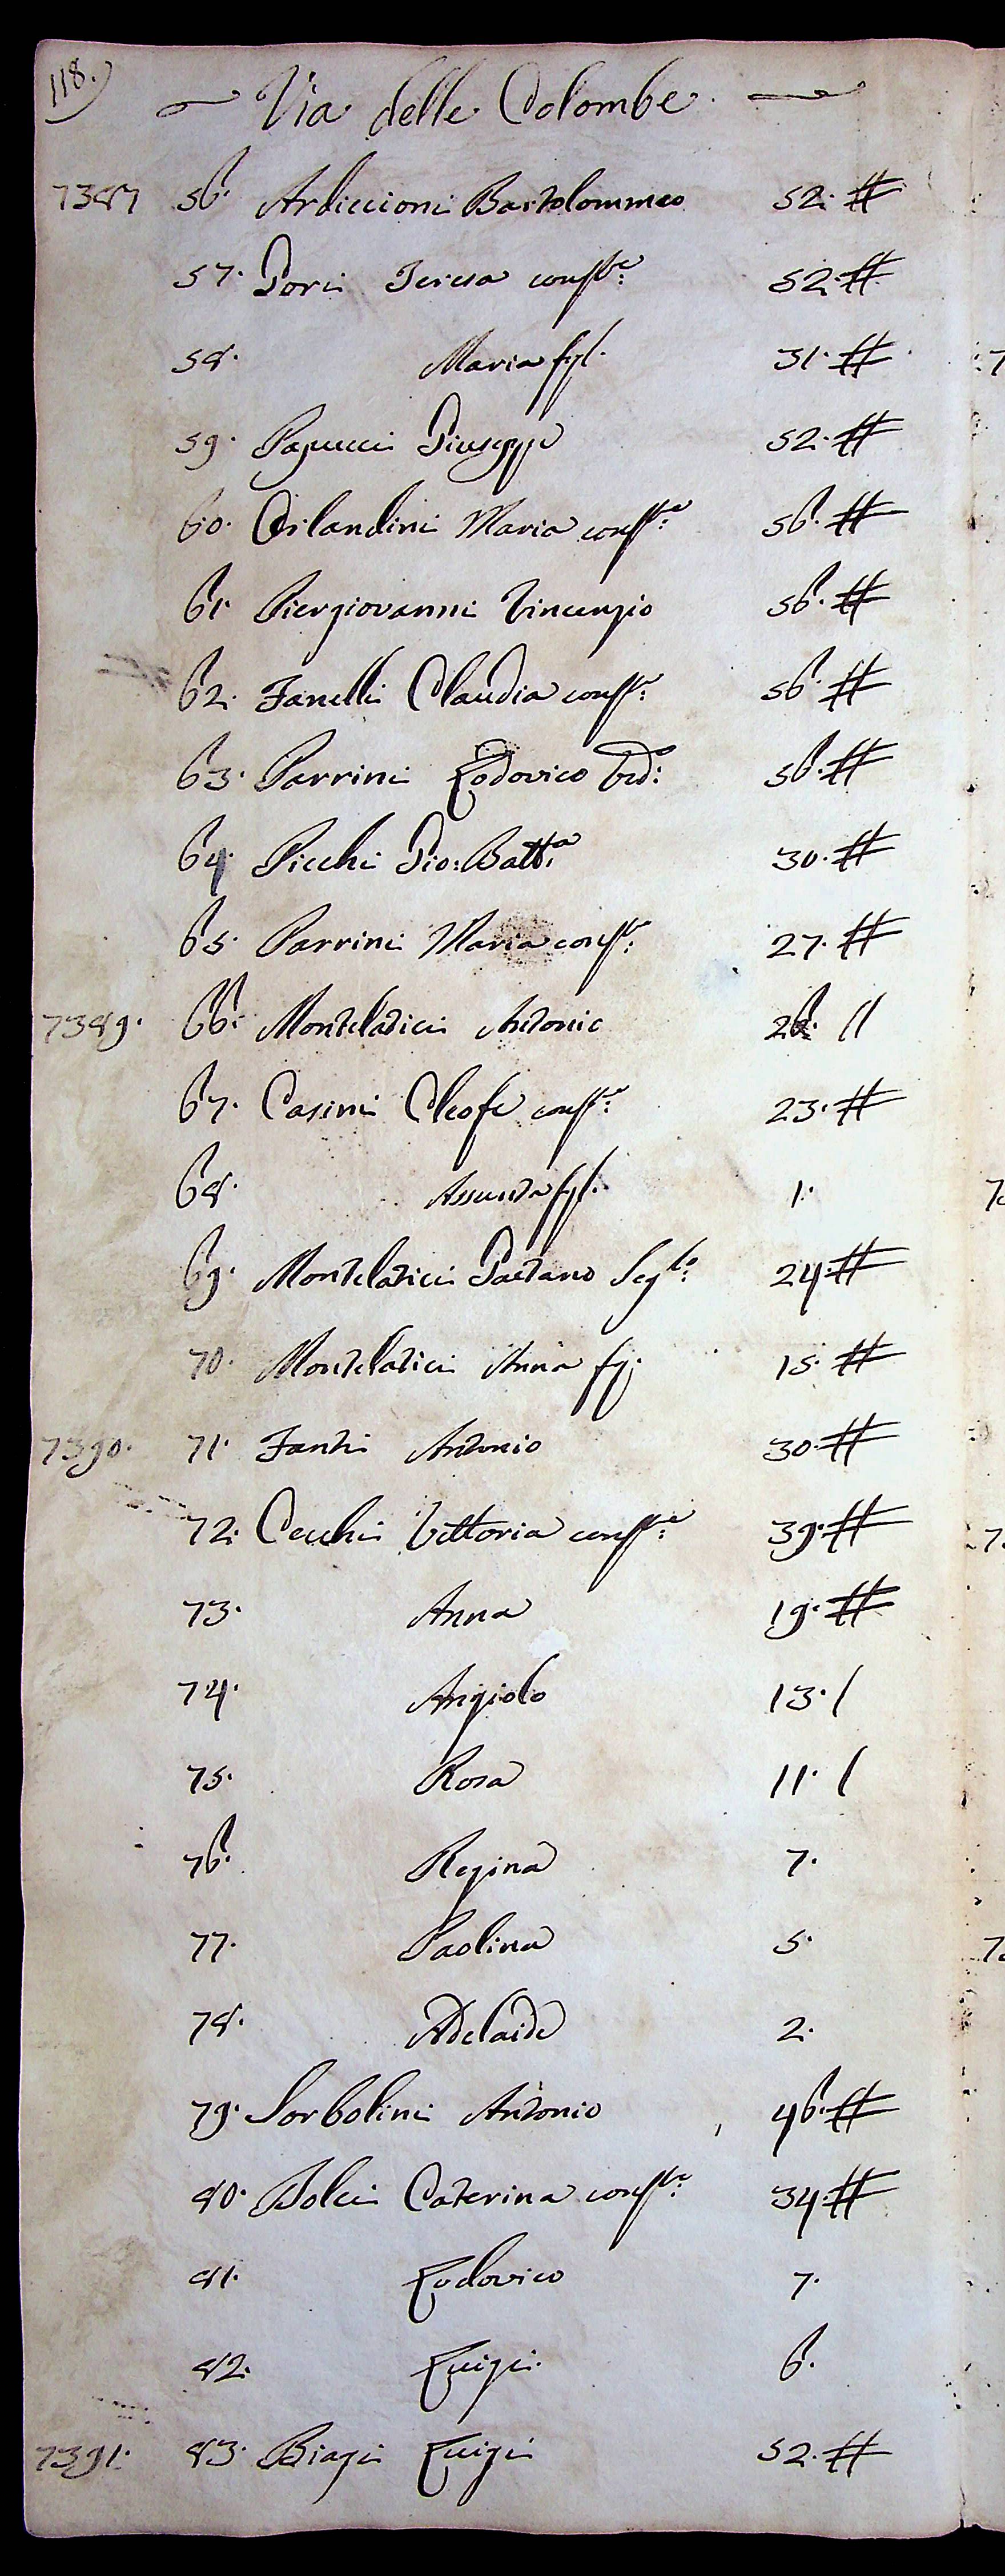 118.
Via delle Colombe
7387 56. Ardiccioni Bartolommeo 52. #
57. Gori Teresa conste: 52. #
58. Maria fgl. 31. #
59. Papucci Giuseppe 52. #
60. Orlandini Maria conste: 56. #
61. Piergiovanni Vincenzio 56. #
62. Fanelli Claudia conste: 56. #
63. Parrini Lodovico Ved: 56. #
64. Picchi Gio: Batta 30. #
65. Parrini Maria conste: 27. #
7389. 66. Montelatici Antonio 26. //
67. Casini Cleofe conste: 23. #
68. Assunta fgl. 1.
69. Montelatici Gaetano 24. #
70. Montelatici Anna fg: 15. #
7390. 71. Fanti Antonio 30. #
72. Cecchi Vittoria conste: 39. #
73. Anna 19. #
74. Angiolo 13. /
75. Rosa 11. /
76. Regina 7.
77. Paolina 5.
78. Adelaide 2.
79. Sorbolini Antonio 46. #
80. Dolci Caterina conste: 34. #
81. Lodovico 7.
82. Luigi 6.
7391. 83. Biagi Luigi 52. #